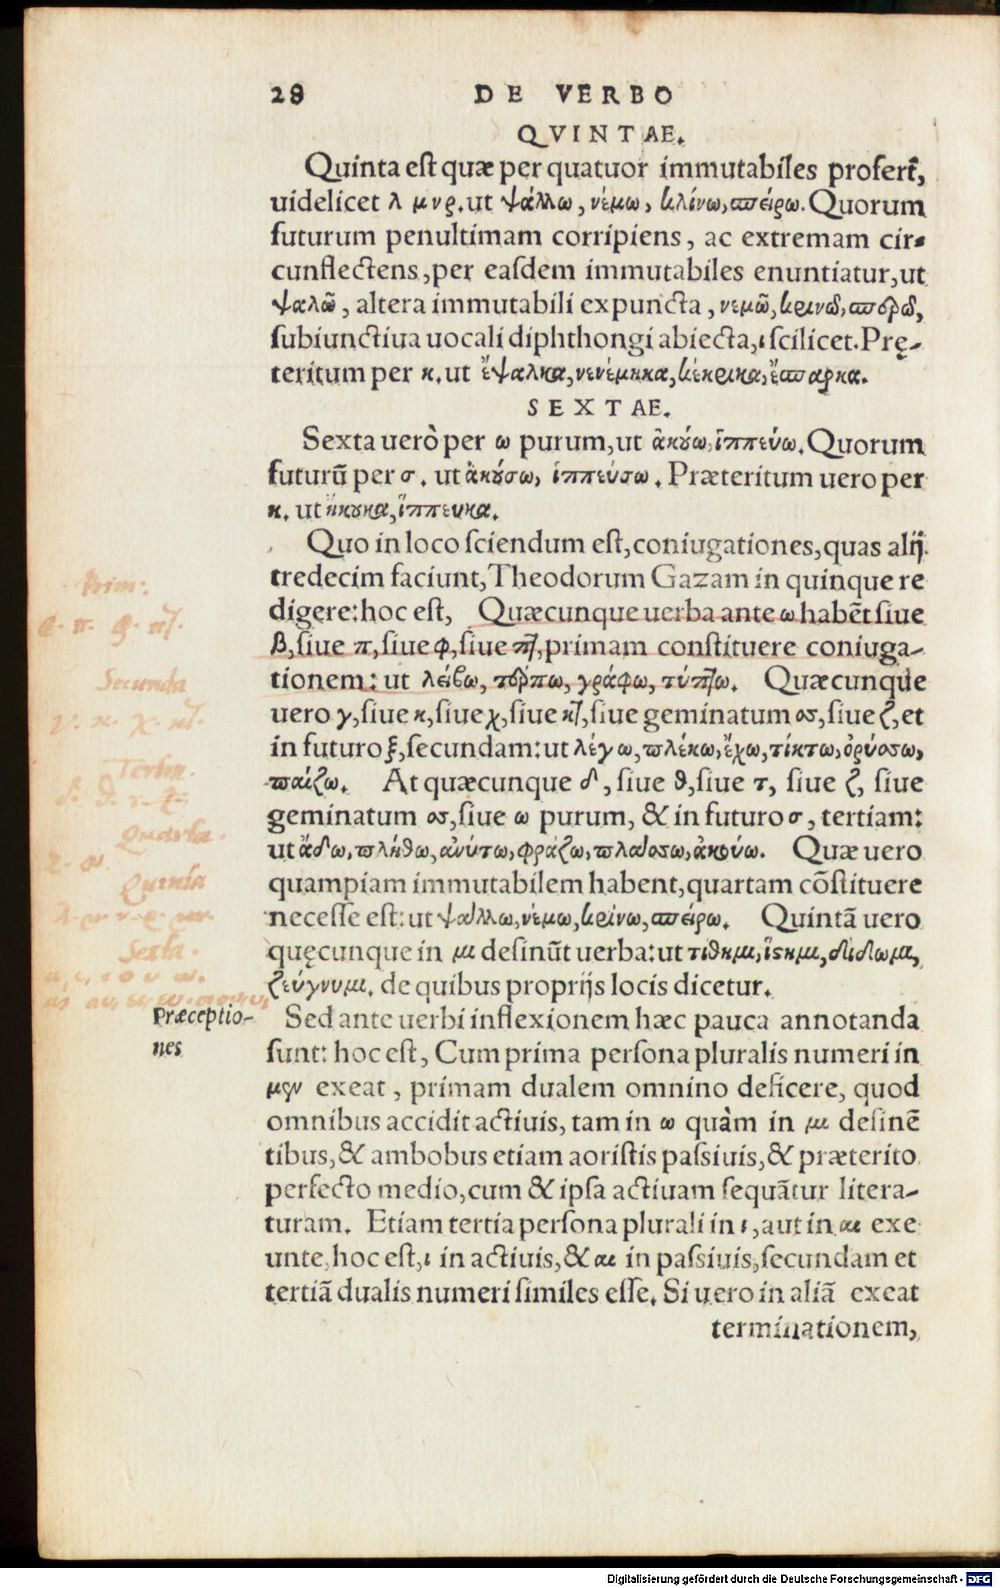 28 DE VERBO
QVINTAE.
Quinta est quæ per quatuor immutabiles profert̃,
uidelicet λ μ ν ρ. ut ψάλλω, νέμω, κλίνω, σπείρω. Quorum
futurum penultimam corripiens, ac extremam cir-
cunflectens, per easdem immutabiles enuntiatur, ut
ψαλῶ, altera immutabili expuncta, νεμῶ, κρινῶ, σπερῶ,
subiunctiua uocali diphthongi abiecta, ι scilicet. Prę-
teritum per κ. ut ἔψαλκα, νενέμηκα, κέκρικα, ἔσπαρκα.
SEXTAE.
Sexta uerò per ω purum, ut ἀκούω, ἱππεύω. Quorum
futurũ per σ. ut ἀκούσω, ἱππεύσω. Præteritum uero per
κ. ut ἤκουκα, ἵππευκα.
Quo in loco sciendum est, coniugationes, quas alij
tredecim faciunt, Theodorum Gazam in quinque re
digere: hoc est, Quæcunque uerba ante ω habẽt siue
β, siue π, siue φ, siue πτ, primam constituere coniuga-
tionem: ut λείβω, τέρπω, γράφω, τύπτω. Quæcunque
uero γ, siue κ, siue χ, siue κτ, siue geminatum σσ, siue ζ, et
in futuro ξ, secundam: ut λέγω, πλέκω, ἔχω, τίκτω, ὀρύσσω,
παίζω. At quæcunque δ, siue θ, siue τ, siue ζ, siue
geminatum σσ, siue ω purum, & in futuro σ, tertiam:
ut ἄδω, πλήθω, ἀνύτω, φράζω, πλάσσω, ἀκούω. Quæ uero
quampiam immutabilem habent, quartam cõstituere
necesse est: ut ψάλλω, νέμω, κρίνω, σπείρω. Quintã uero
quęcunque in μι desinũt uerba: ut τίθημι, ἵστημι, δίδωμι,
ζεύγνυμι. de quibus proprijs locis dicetur.
Præceptio-
nes
Sed ante uerbi inflexionem hæc pauca annotanda
sunt: hoc est, Cum prima persona pluralis numeri in
μεν exeat, primam dualem omnino deficere, quod
omnibus accidit actiuis, tam in ω quàm in μι desinẽ
tibus, & ambobus etiam aoristis passiuis, & præterito
perfecto medio, cum & ipsa actiuam sequãtur litera-
turam. Etiam tertia persona plurali in ι, aut in αι exe
unte, hoc est, ι in actiuis, & αι in passiuis, secundam et
tertiã dualis numeri similes esse. Si uero in aliã exeat
terminationem,
Prim:
Secunda
γ. κ. χ. κτ.
Tertia.
δ. θ. τ. ζ.
Quarta.
Quinta
Sexta.
Digitalisierung gefördert durch die Deutsche Forschungsgemeinschaft - DFG